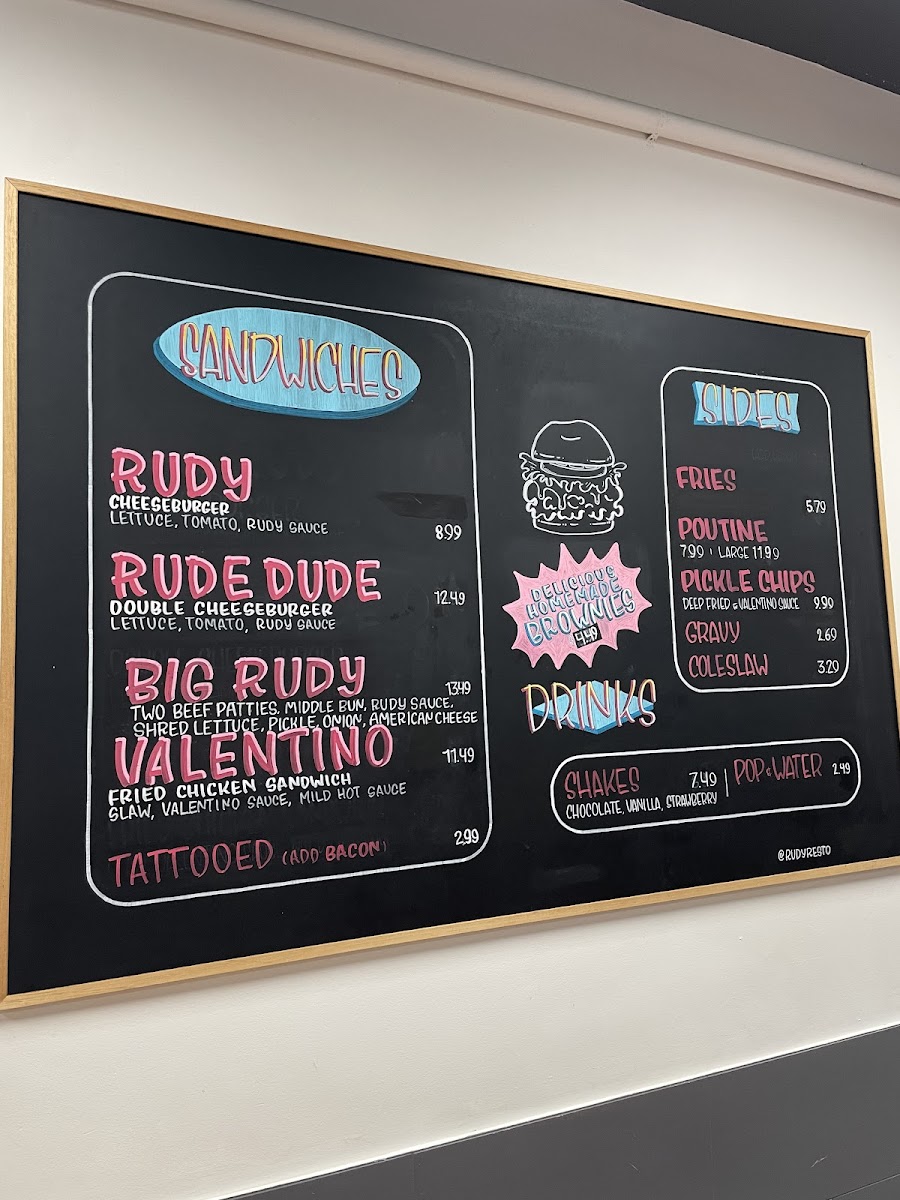 SANDWICHES
RUDY
CHEESEBURGER
LETTUCE, TOMATO, RUDY SAUCE
8.99
RUDE DUDE
DOUBLE CHEESEBURGER
12.49
LETTUCE, TOMATO, RUDY SAUCE
BIG RUDY
13.49
TWO BEEF PATTIES, MIDDLE BUN, RUDY SAUCE,
SHRED LETTUCE, PICKLE, ONION, AMERICAN CHEESE
VALENTINO
11.49
FRIED CHICKEN SANDWICH
SLAW, VALENTINO SAUCE, MILD HOT SAUCE
TATTOOED (ADD BACON) 2.99
DELICIOUS
HOMEMADE
BROWNIES
4.49
SIDES
FRIES
5.79
POUTINE
7.99 | LARGE 11.99
PICKLE CHIPS
DEEP FRIED & VALENTINO SAUCE 9.90
GRAVY 2.69
COLESLAW 3.20
DRINKS
SHAKES 7.49 | POP & WATER 2.49
CHOCOLATE, VANILLA, STRAWBERRY
@RUDYRESTO